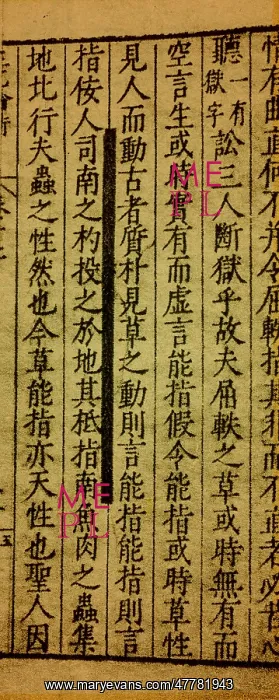 情有曲直何不並令屈軼指其非而不直者必苦心
聽一有獄字訟三人斷獄乎故夫屈軼之草或時無有而
空言生或時實有而虛言能指假令能指或時草性
見人而動古者質朴見草之動則言能指能指則言
指佞人司南之杓投之於地其柢指南魚肉之蟲集
地北行夫蟲之性然也今草能指亦天性也聖人因
五
ME
PL
ME
PL
www.maryevans.com/47781943